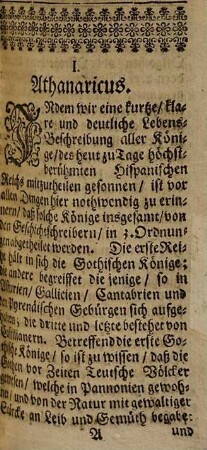 I.
Athanaricus.
INdem wir eine kurtze/ kla-
re und deutliche Lebens-
Beschreibung aller Köni-
ge/ des heut zu Tage höchst-
berühmten Hispanischen
Reichs mitzutheilen gesonnen/ ist vor
allen Dingen hier nothwendig zu erin-
nern/ daß solche Könige insgesamt/ von
den Geschichtschreibern/ in 3. Ordnun-
gen abgetheilet werden. Die erste Rei-
hält in sich die Gothischen Könige;
die andere begreiffet die jenige/ so in
Gallicien/ Cantabrien und
Pyrendischen Gebürgen sich aufge-
die dritte und letzte bestehet von
Betreffend die erste Go-
Könige/ so ist zu wissen/ daß die
vor Zeiten Teutsche Völcker
welche in Pannonien gewoh-
und von der Natur mit gewaltiger
Stärcke an Leib und Gemüth begabe:
A und